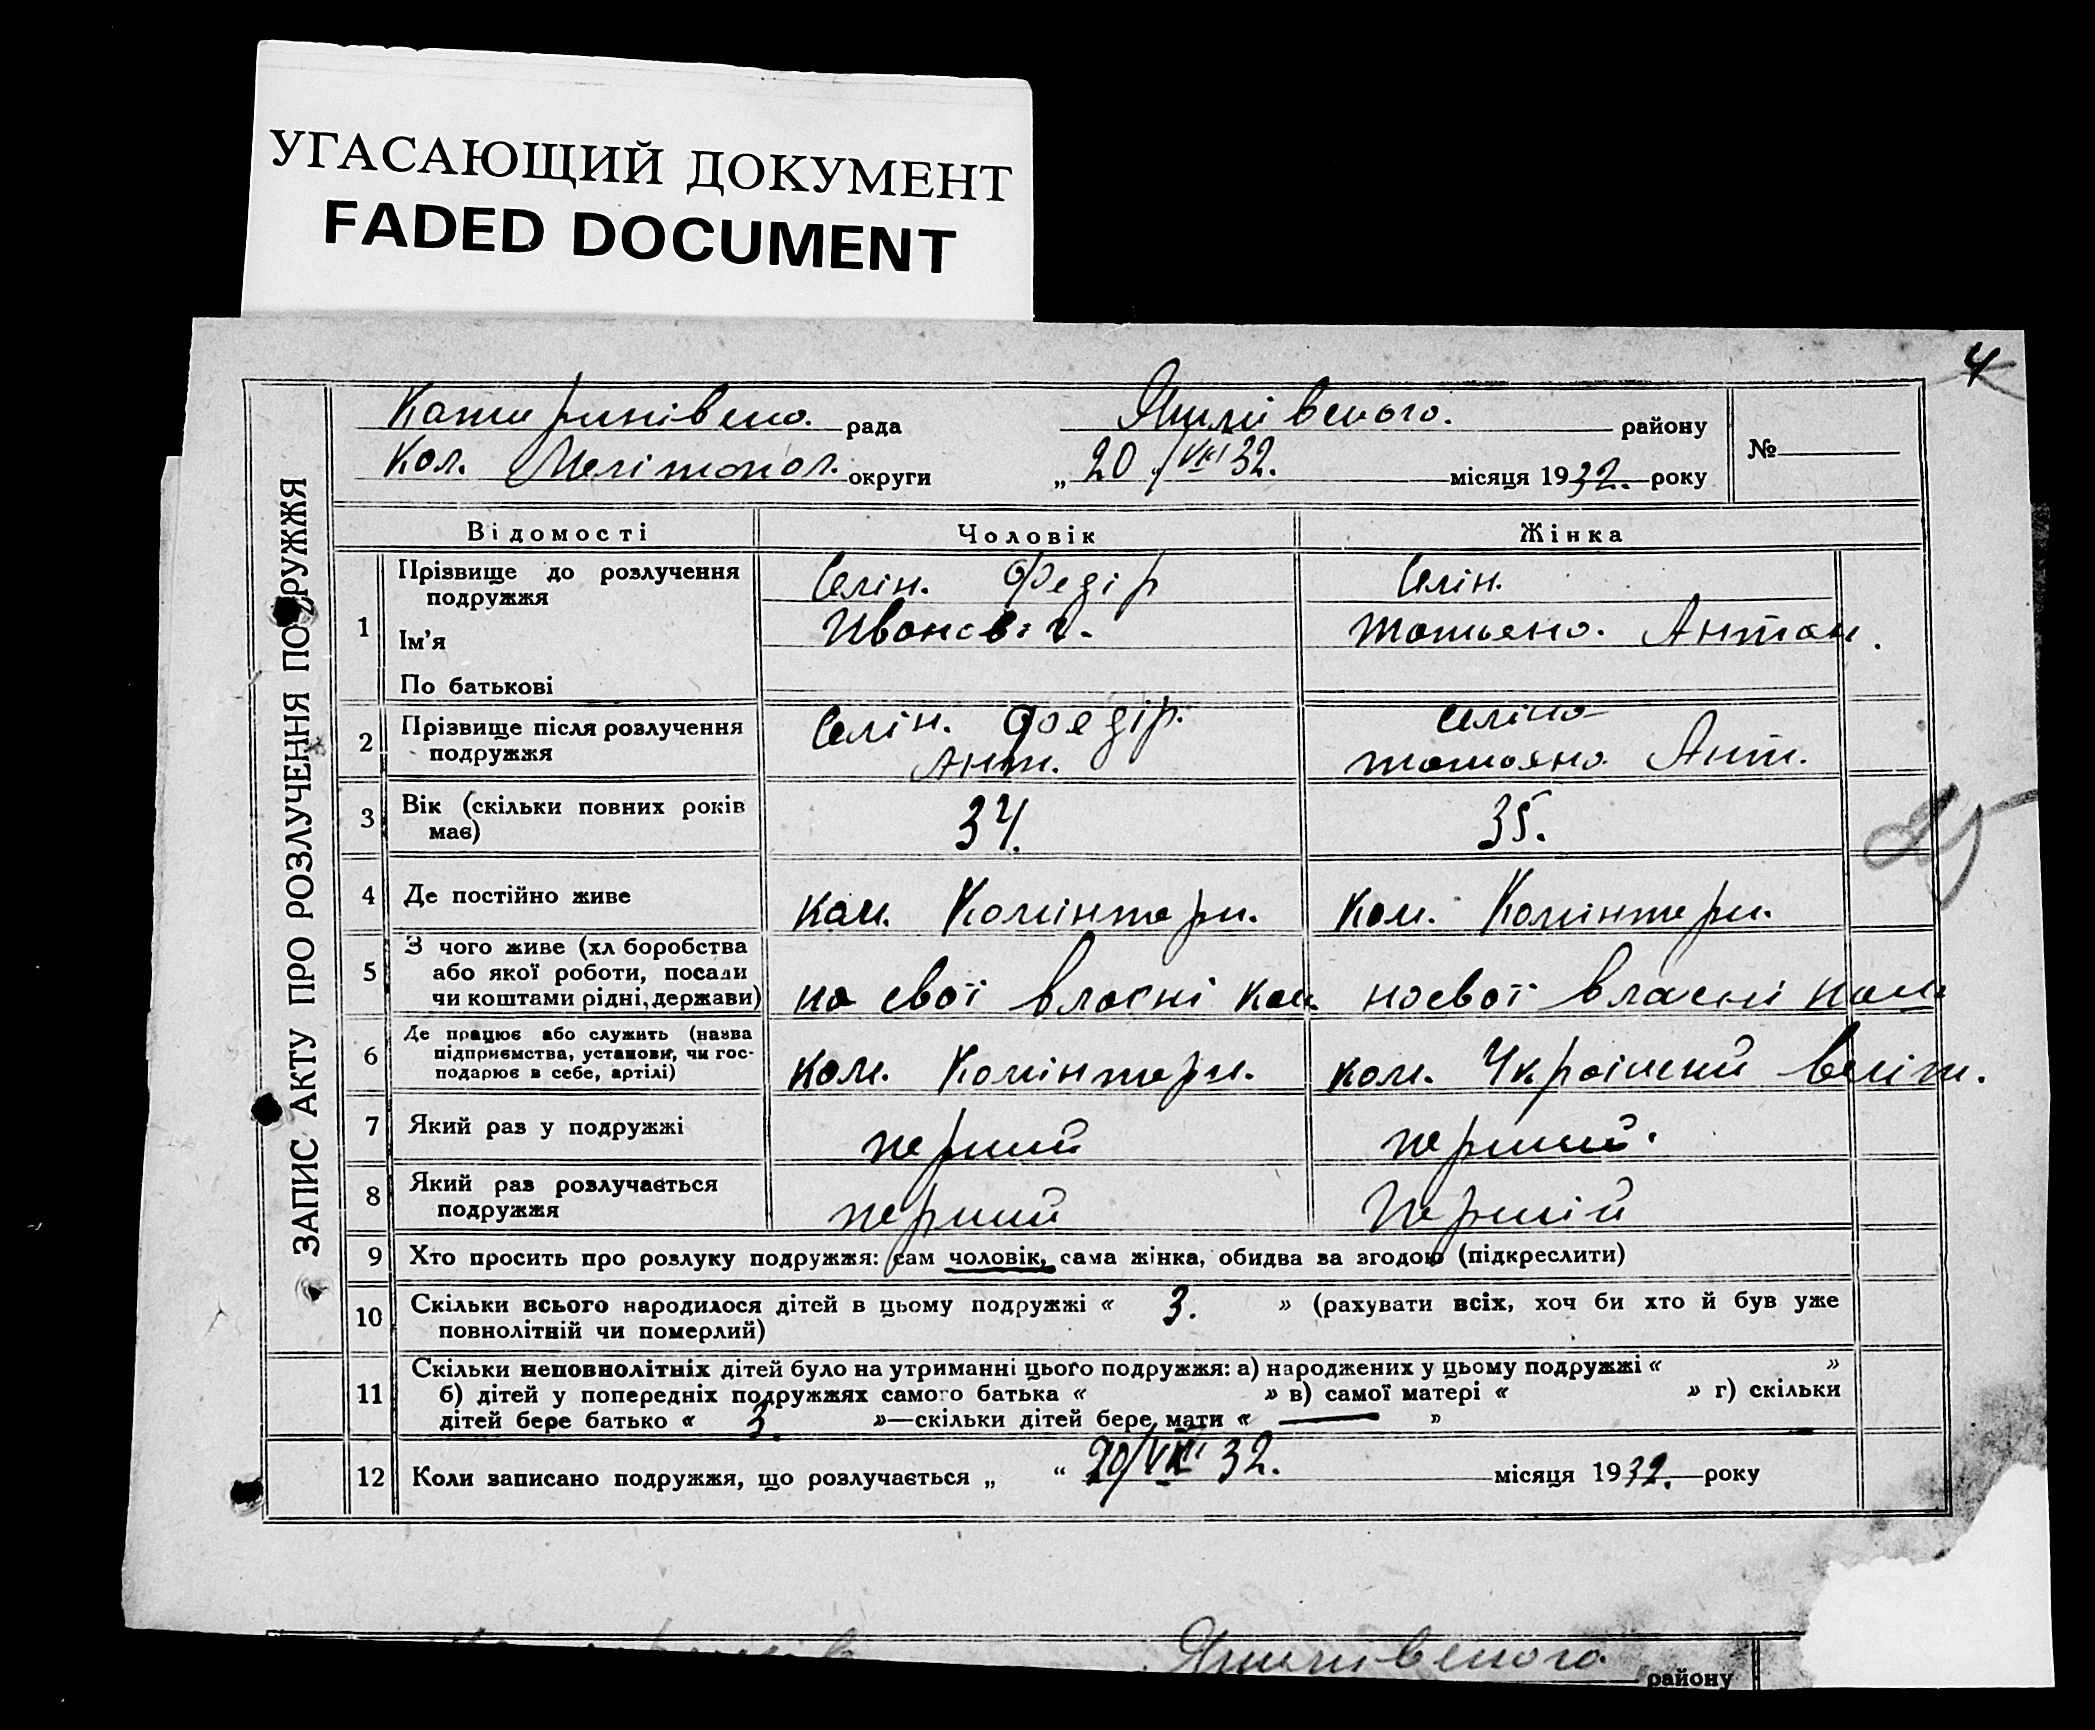 УГАСАЮЩИЙ ДОКУМЕНТ
FADED DOCUMENT
4
ЗАПИС АКТУ ПРО РОЗЛУЧЕННЯ ПОДРУЖЖЯ
Катеринівсько. рада
районy
№
Кол. Мелітопол. округи
„ 20 / VIII 32. місяця 1932. року
Відомості Чоловік Жінка
1 Прізвище до розлучення подружжя Селін. Федір Селін.
Ім’я Иванович. Татьяно. Антон.
По батькові
2 Прізвище після розлучення Селін. Федір. Селіно
подружжя Ант. татьяно Ант.
3 Вік (скільки повних років має) 34. 35.
4 Де постійно живе ком. Комінтерн. Ком. Комінтерн.
5 З чого живе (хліборобства
або якої роботи, посади
чи коштами рідні, держави) на свої власні кош. на свої власні кош
6 Де працює або служить (назва
підприємства, установи, чи гос-
подарює в себе, артілі) ком. Комінтерн. ком.
7 Який раз у подружжі перший перший.
8 Який раз розлучається
подружжя перший Першій
9 Хто просить про розлуку подружжя: сам чоловік, сама жінка, обидва за згодою (підкреслити)
10 Скільки всього народилося дітей в цьому подружжі « 3. » (рахувати всіх, хоч би хто й був уже
повнолітній чи померлий)
11 Скільки неповнолітніх дітей було на утриманні цього подружжя: а) народжених у цьому подружжі « »
б) дітей у попередніх подружжях самого батька « » в) самої матері « » г) скільки
дітей бере батько « 3. »—скільки дітей бере мати « — »
12 Коли записано подружжя, що розлучається „ “ 20/VIII 32. місяця 1932. року
району